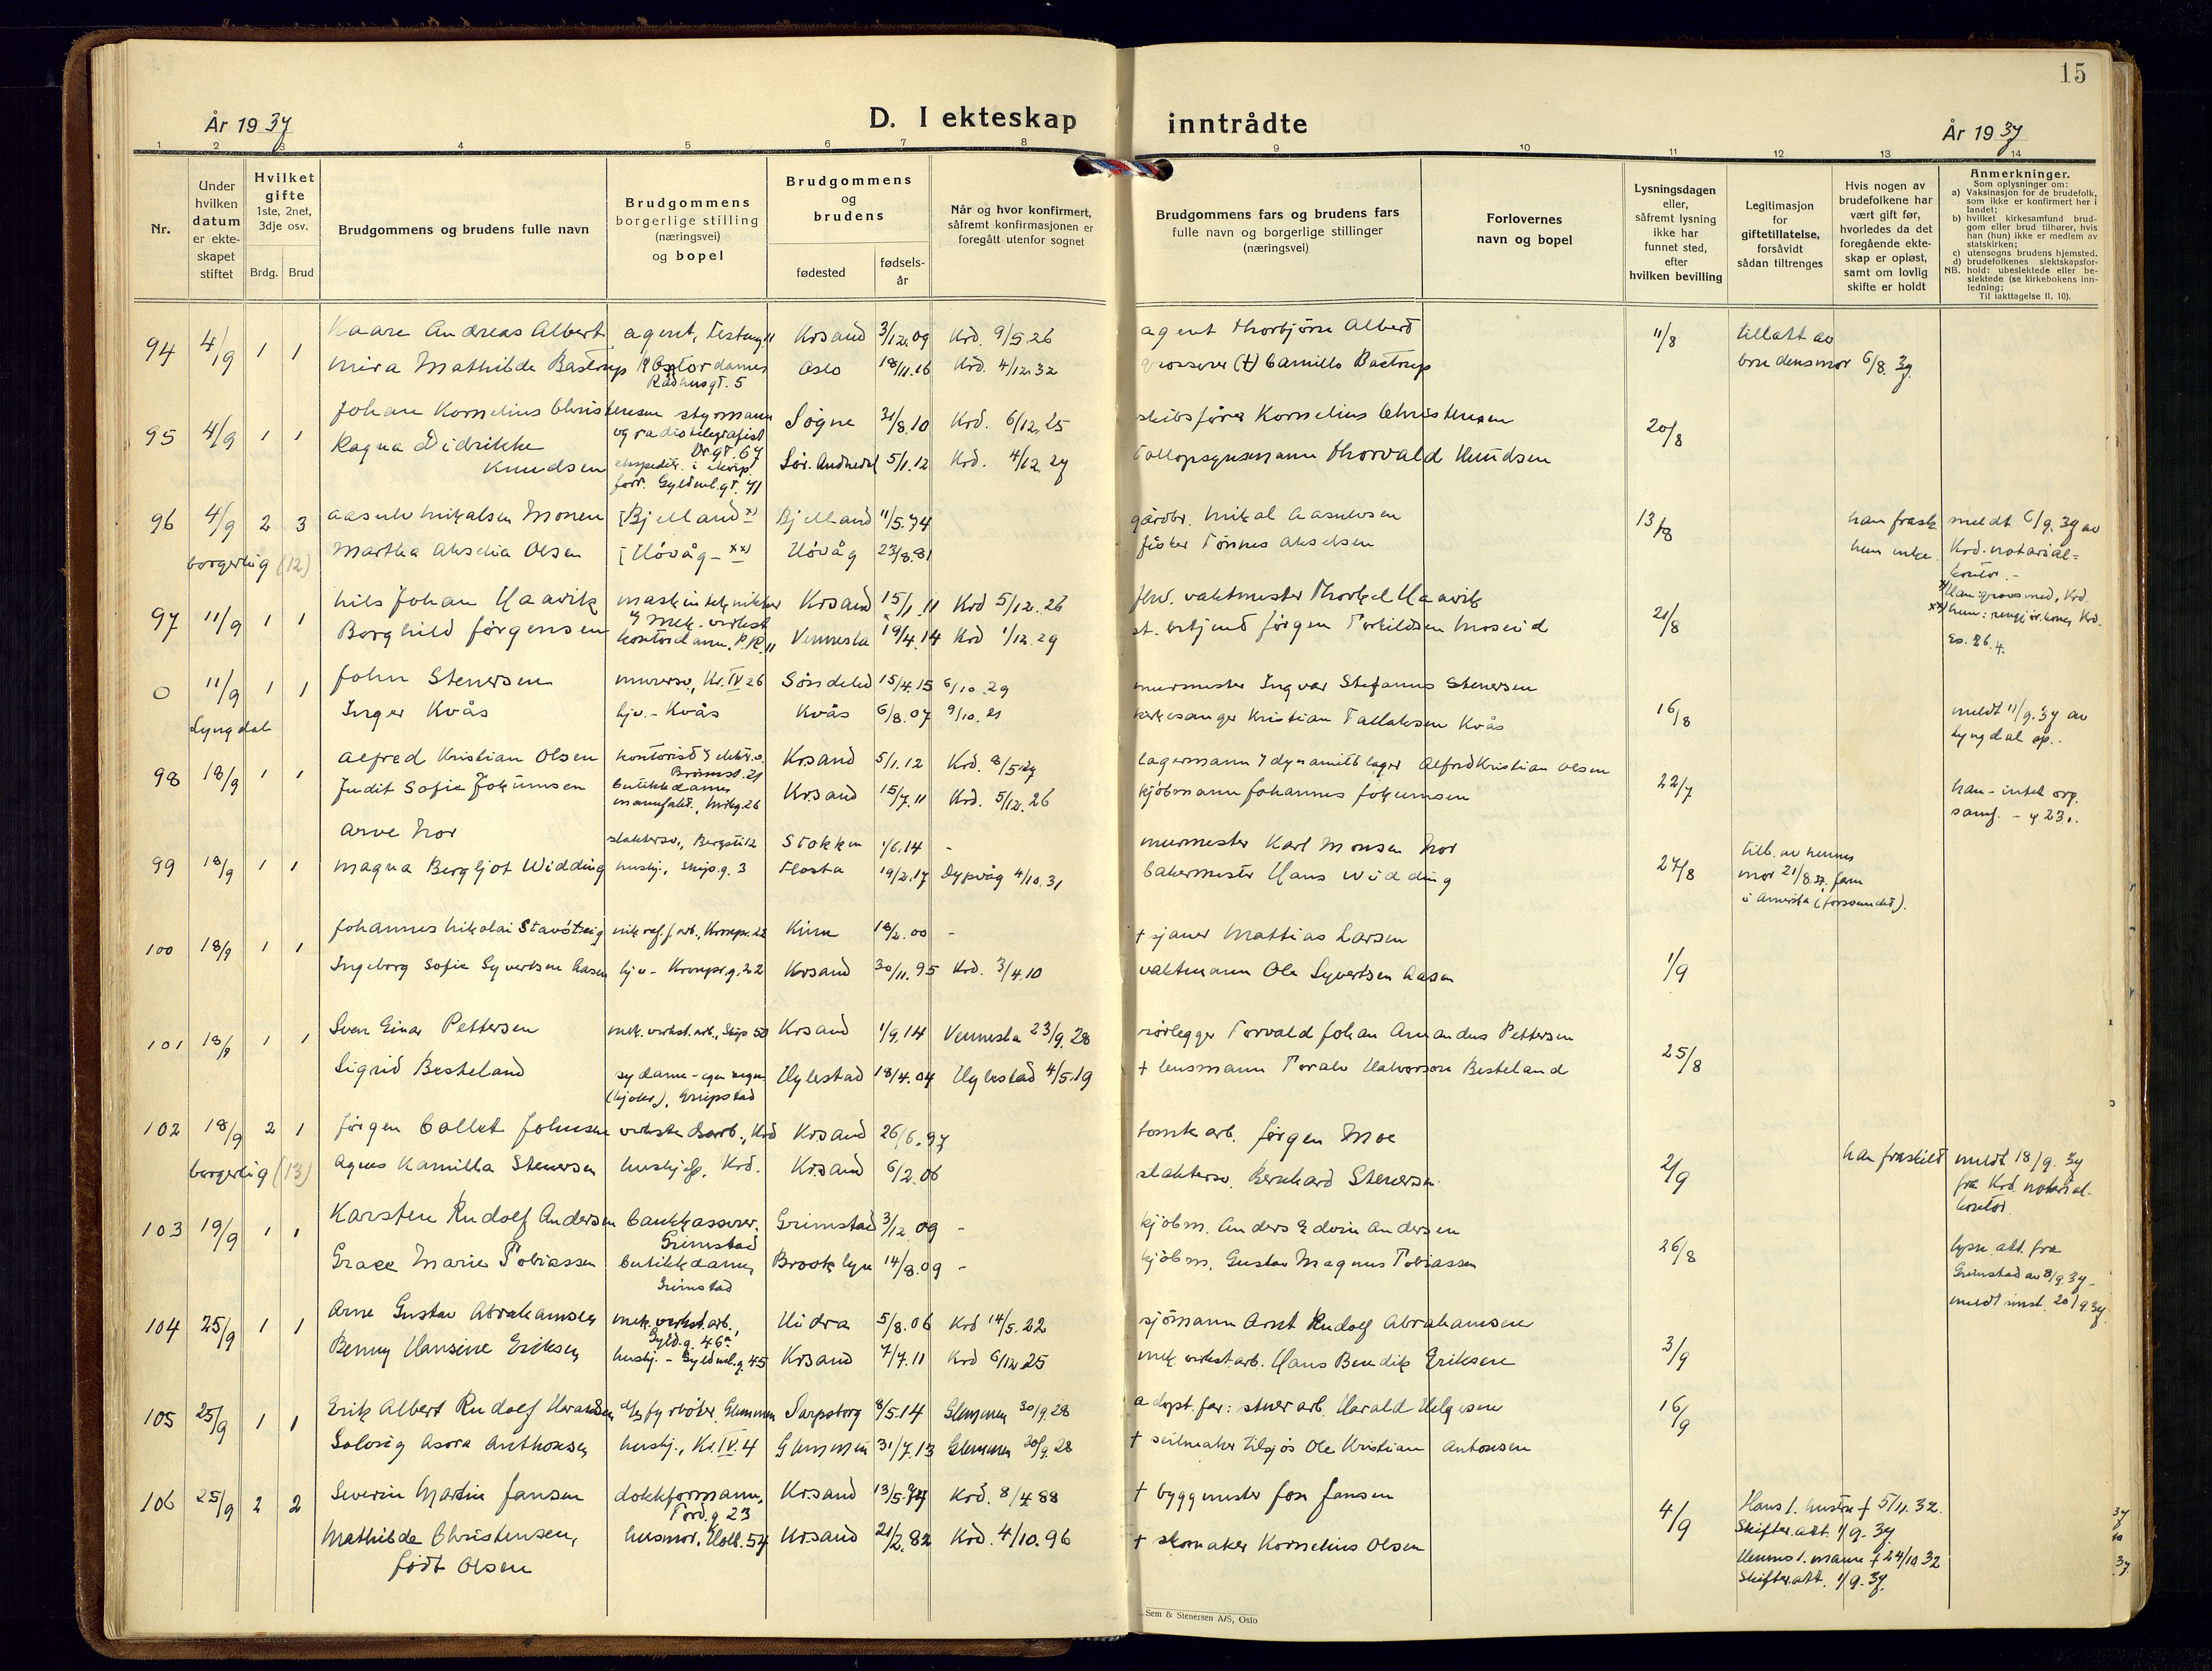 15
År 1937
D. I ekteskap inntrådte
År 1937
1 2 3 4 5 6 7 8 9 10 11 12 13 14
Nr.
Under
hvilken
datum
er ekte-
skapet
stiftet
Hvilket
gifte
1ste, 2net,
3dje osv.
Brdg. Brud
Brudgommens og brudens fulle navn
Brudgommens
borgerlige stilling
(næringsvei)
og bopel
Brudgommens
og
brudens
fødested
fødsels-
år
Når og hvor konfirmert,
såfremt konfirmasjonen er
foregått utenfor sognet
Brudgommens fars og brudens fars
fulle navn og borgerlige stillinger
(næringsvei)
Forlovernes
navn og bopel
Lysningsdagen
eller,
såfremt lysning
ikke har
funnet sted,
efter
hvilken bevilling
Legitimasjon
for
giftetillatelse,
forsåvidt
sådan tiltrenges
Hvis nogen av
brudefolkene har
vært gift før,
hvorledes da det
foregående ekte-
skap er opløst,
samt om lovlig
skifte er holdt
Anmerkninger.
Som oplysninger om:
a) Vaksinasjon for de brudefolk,
som ikke er konfirmert her i
landet;
b) hvilket kirkesamfund brud-
gom eller brud tilhører, hvis
han (hun) ikke er medlem av
statskirken;
c) utensogns brudens hjemsted.
d) brudefolkenes slektskapsfor-
NB. hold: ubeslektede eller be-
slektede (se kirkebokens inn-
ledning;
Til iakttagelse II. 10).
94 4/9 1 1 Kaare Andreas Albert agent, Festung 11 Krsand 3/12.09 Krd. 9/5.26 agent Thorbjørn Albert 11/8 tillatt av
Mira Mathilde Bastrup kontordame Rådhusgt. 5 Oslo 18/11.16 Krd. 4/12.32 grosserer (†) Camillo Bastrup brudens mor 6/8.37
95 4/9 1 1 Johan Kornelius Christensen styrmann og radiotelegrafist Dr.gt. 67 Søgne 31/8.10 Krd. 6/12.25 skibsfører Kornelius Christensen 20/8
Ragna Didrikke Knudsen ekspeditr. i Gyldnl.gt. 41 5/1.12 Krd. 4/12.27 Tollopsynsmann Thorvald Knudsen
96 4/9 2 3 Aasulv Mikalsen Monen [Bjelland x) Bjelland 11/5.74 gårdbr. Mikal Aasulvsen 13/8 han frask. meldt 6/9.37 av
borgerlig (12) Martha Akselia Olsen [Høvåg - xx) Høvåg 23/8.81 fisker Tønnes Akselsen hun enke Krd. notarial-
kontor.-
x) Han: grovsmed, Krd.
xx) hun: rengjør.kone, Krd.
97 11/9 1 1 Nils Johan Haavik maskintekniker Krsand 15/1.11 Krd 5/12.26 fhv. vaktmester Thorkel Haavik 21/8
Borghild Jørgensen kontordame, P.K. 11 Vennesla 19/4.14 Krd 1/12.29 st. betjent Jørgen Torkildsen Moseid
0 11/9 1 1 John Stenersen murersv., Kr.IV 26 Søndeled 15/4.15 6/10.29 murmester Ingvar Stefanus Stenersen 16/8 meldt 11/9.37 av
Lyngdal Inger Kvås hjv. - Kvås Kvås 6/8.07 9/10.21 kirkesanger Kristian Tallaksen Kvås Lyngdal sp..
98 18/9 1 1 Alfred Kristian Olsen kontorist Krsand 5/1.12 Krd. 8/5.27 lagermann i dynamittlager Alfred Kristian Olsen 22/7 han - intet org.
Judit Sofie Johumsen butikkdame manufakt. Krsand 15/7.11 Krd. 5/12.26 kjøbmann Johannes Johumsen samf.
99 18/9 1 1 Arve Nor slaktersv., Bergsti 12 Stokken 1/6.14 - murmester Karl Monsen Nor 27/8 till. av hennes
Magna Bergljot Widding hushj., Skipp.g. 3 Flosta 19/2.17 Dypvåg 4/10.31 bakermestr Hans Widding mor 21/8.37, faren
i Amerika (forsvundet).
100 18/9 1 1 Johannes Nikolai Stavøstrig nik.raf.f.arb., Kronpr. 22 Kinn 18/2.00 - † sjauer Mattias Larsen 1/9
Ingeborg Sofie Syvertsen Aasen hjv - Kronpr.g. 22 Krsand 30/11.95 Krd. 3/4.10 vaktmann Ole Syvertsen Aasen
101 18/9 1 1 Sven Einar Pettersen mek. verkst.arb., Skip 50 Krsand 1/9.14 Vennesla 23/9.28 rørlegger Torvald Johan Amandus Pettersen 25/8
Sigrid Besteland sydame - egen (kjoler), Gripstad Hylestad 18/4.04 Hylestad 4/5.19 † lensmann Torale Halvorson Besteland
102 18/9 2 1 Jørgen Collet Johnsen verkstedarb., Krd Krsand 26/6.97 tomtearb. Jørgen Moe 2/9 han fraskilt meldt 18/9.37
borgerlig (13) Agnes Kamilla Stenersen hushjelp, Krd. Krsand 6/2.06 slaktersv. Bernhard Stenersen fra Krd. notarial-
kontor.
103 19/9 1 1 Karsten Rudolf Andersen bankkasserer, Grimstad Grimstad 3/12.09 - kjøbm. Anders Edvin Andersen 26/8 lysn. att. fra
Grace Marie Tobiassen butikkdame, Grimstad Brooklyn 14/8.09 - kjøbm. Gustav Magnus Tobiassen Grimstad av 8/9.37 -
meldt smst. 20/9.37
104 25/9 1 1 Arne Gustav Abrahamsen mek. verkst.arb., Gyld.g. 46a Hidra 5/8.06 Krd 14/5.22 sjømann Arnt Rudolf Abrahamsen 3/9
Benny Hansine Eriksen hushj. - Gyldnl.g. 45 Krsand 7/7.11 Krd 6/12.25 mek. verkst.arb. Hans Bendik Eriksen
105 25/9 1 1 Erik Albert Rudolf Haraldsen d/s fyrbøter, Glemmen Sarpsborg 8/5.14 Glemmen 30/9.28 adopt. far: stuerarb. Harald Helgesen 16/9
Solveig Asora Anthonsen hushj., Kr.IV.4 Glemmen 31/7.13 Glemmen 30/9.28 † seilmaker tilsjøs Ole Kristian Antonsen
106 25/9 2 2 Severin Martin Jansen dokkformann, Tord.g. 23 Krsand 13/5.74 Krd. 8/4.88 † byggmester Jon Jansen 4/9 Hans 1. hustru † 5/11.32.
Skifteratt. 1/9.37
Mathilde Christensen, husmor, Holb. 57 Krsand 21/2.82 Krd. 4/10.96 † skomaker Kornelius Olsen Hennes 1. mann † 24/10.32
født Olsen Skifteratt. 1/9.37.
Sem & Stenersen A/S, Oslo